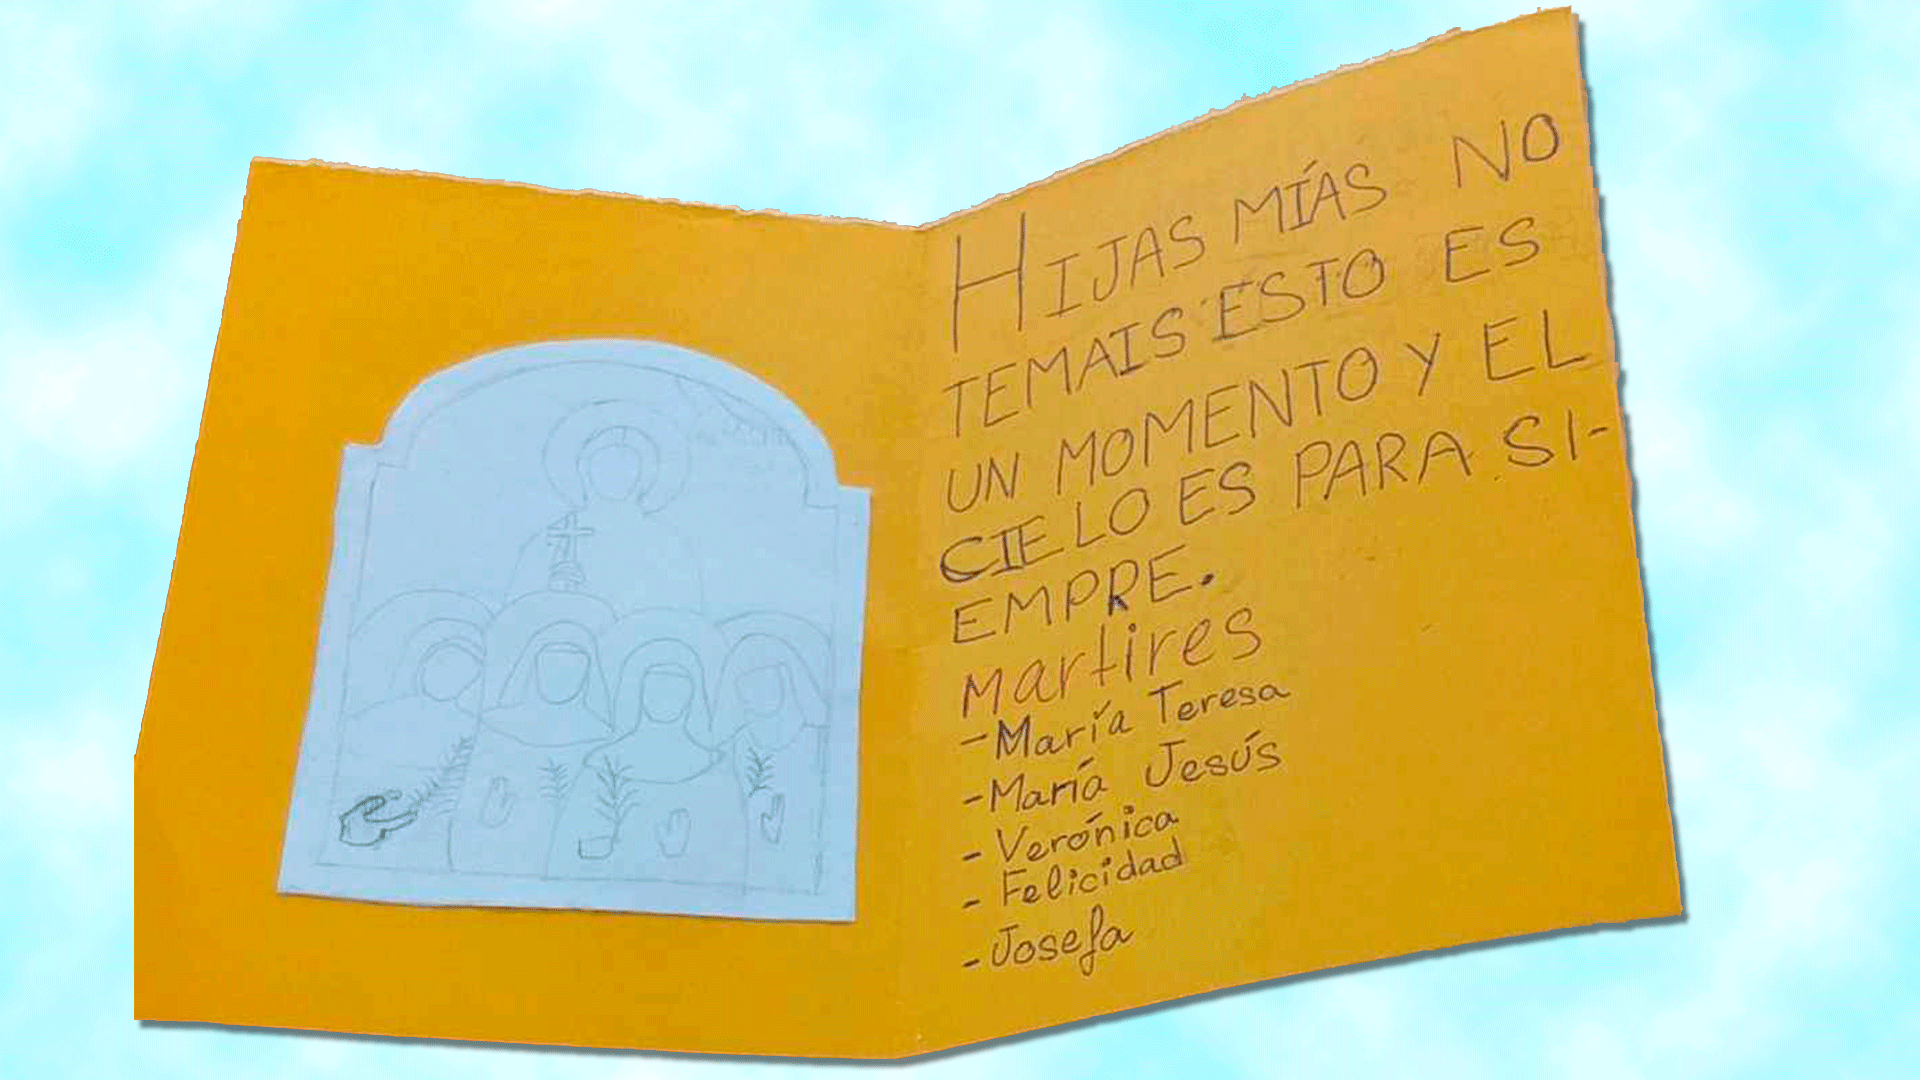 HIJAS MÍAS NO
TEMAIS ESTO ES
UN MOMENTO Y EL
CIELO ES PARA SI-
EMPRE.
martires
-María Teresa
-María Jesús
- Verónica
- Felicidad
- Josefa